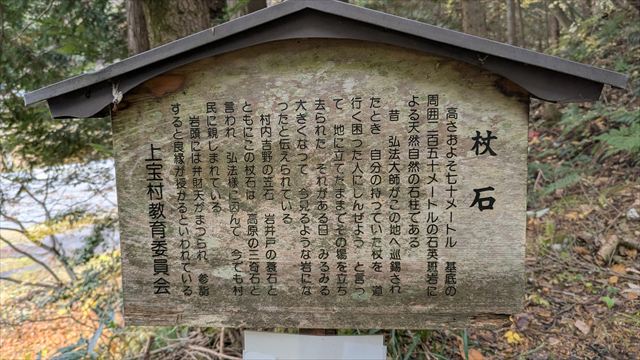 杖石
高さおよそ七十メートル　基底の
周囲二百五十メートルの石英斑岩に
よる天然自然の石柱である
昔　弘法大師がこの地へ巡錫され
たとき　自分の持っていた杖を　道
行く困った人にしんぜよう　と言っ
て　地に立てたままでその場を立ち
去られた　それがある日　みるみる
大きくなって　今見るような岩にな
ったと伝えられている
村内吉野の笠石　岩井戸の蓑石と
ともにこの杖石は　高原の三奇石と
言われ　弘法様に因んで　今でも村
民に親しまれている
岩頭には弁財天がまつられ　参詣
すると良縁が授かるといわれている
上宝村教育委員会